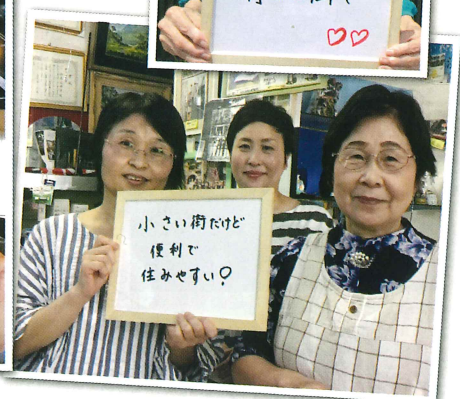 小さい街だけど
便利で
住みやすい♀